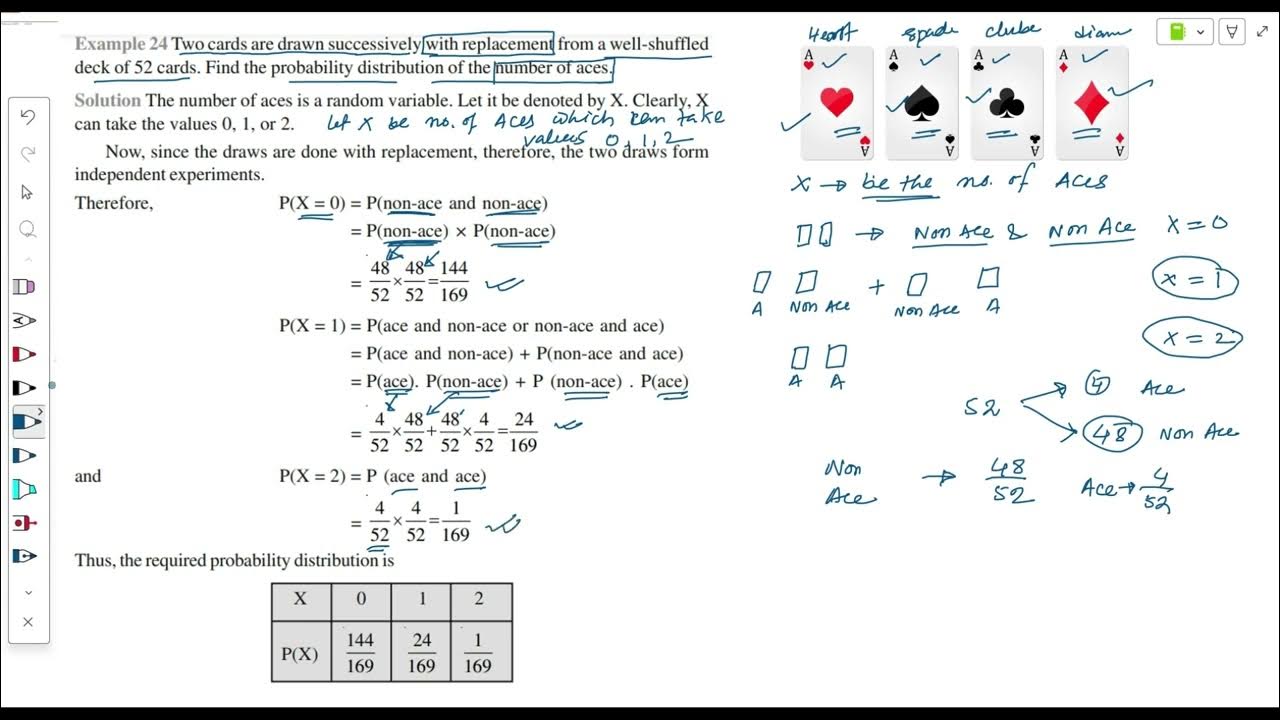 Example 24 Two cards are drawn successively with replacement from a well-shuffled
deck of 52 cards. Find the probability distribution of the number of aces.
Solution The number of aces is a random variable. Let it be denoted by X. Clearly, X
can take the values 0, 1, or 2. Let X be no. of Aces which can take
values 0, 1, 2
Now, since the draws are done with replacement, therefore, the two draws form
independent experiments.
Therefore, P(X = 0) = P(non-ace and non-ace)
= P(non-ace) × P(non-ace)
= 48/52 × 48/52 = 144/169
P(X = 1) = P(ace and non-ace or non-ace and ace)
= P(ace and non-ace) + P(non-ace and ace)
= P(ace). P(non-ace) + P (non-ace) . P(ace)
= 4/52 × 48/52 + 48/52 × 4/52 = 24/169
and P(X = 2) = P (ace and ace)
= 4/52 × 4/52 = 1/169
Thus, the required probability distribution is
X 0 1 2
P(X) 144/169 24/169 1/169
Heart spade clube diam
A A A A
A A A A
X → be the no. of Aces
→ Non Ace & Non Ace X = 0
+ x = 1
A Non Ace Non Ace A
x = 2
A A
52 4 Ace
48 Non Ace
Non Ace → 48/52 Ace → 4/52